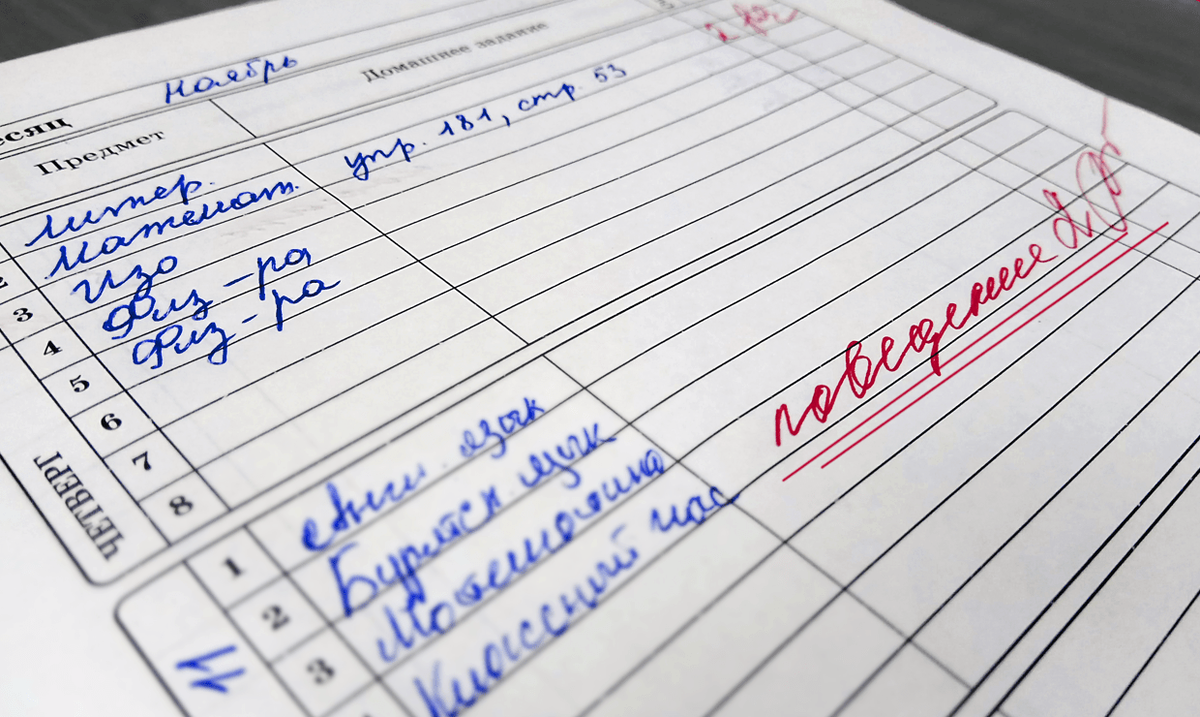 есяц ноябрь
Предмет Домашнее задание
литер.
2 математ. упр. 181, стр. 53
3 Изо
4 Физ-ра
5 Физ-ра
6
7
8
ЧЕТВЕРГ
поведение 2
1 Англ. язык
2 Бурятск. язык
3 Математика
Классный час
11